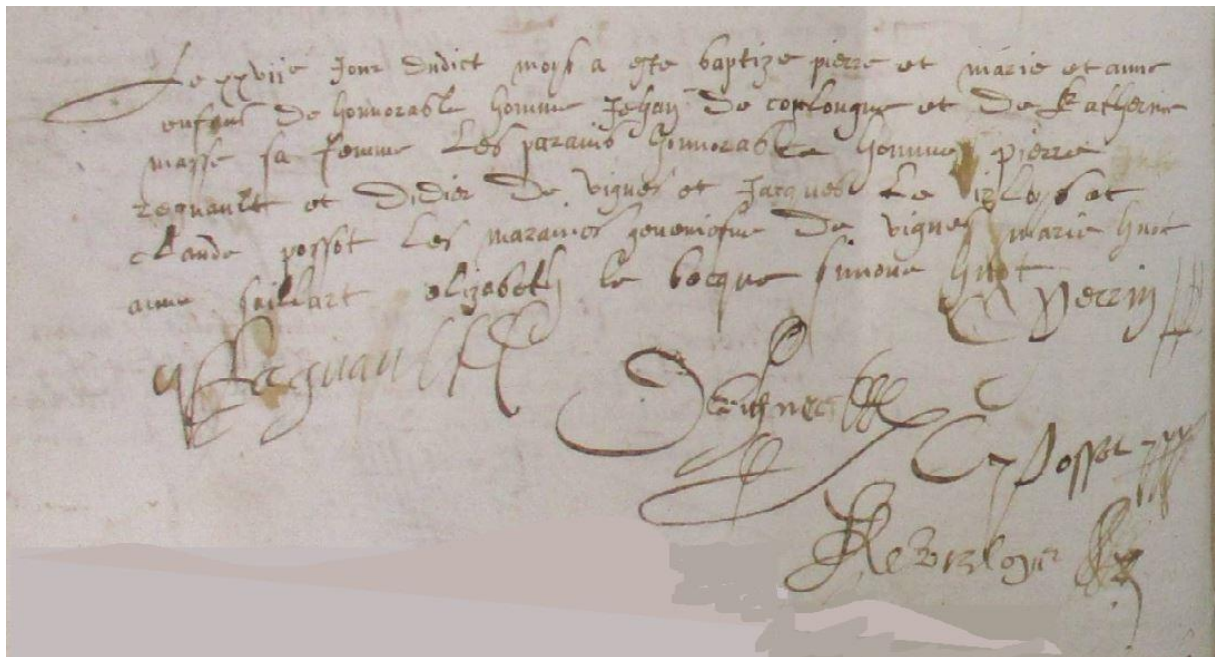 Le xxviie Jour dudict moys a este baptize pierre et marie et anne
enfans de honnorable homme Jehan de coulongne et de Katherine
masse sa femme Les parains honnorable homme pierre
regnault et Didier de vignes et Jacques Le vizloys et
Claude possot Les maraines geneviefve de vignes marie huot
anne saillart elizabeth le bocque simone huot
Perrin
Regnault
Devignes
C Possot